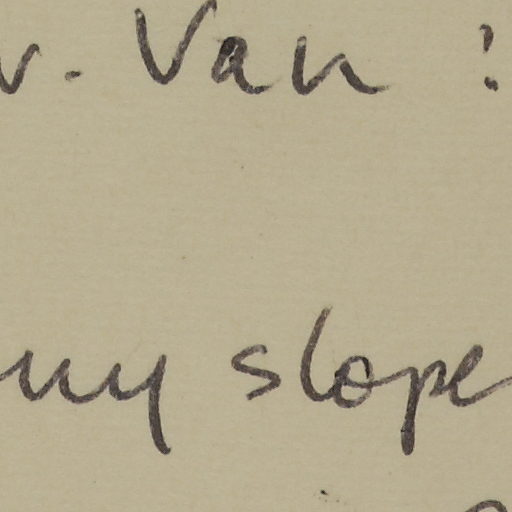 v. Van :
my slope